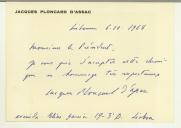 JACQUES PLONCARD D'ASSAC
Lisbonne 6.10.1968
Monsieur le Président,
Je vous prie d'accepter cette
que en hommage très respectueux
Jacques Ploncard d'Assac
19-3º D. Lisbonne